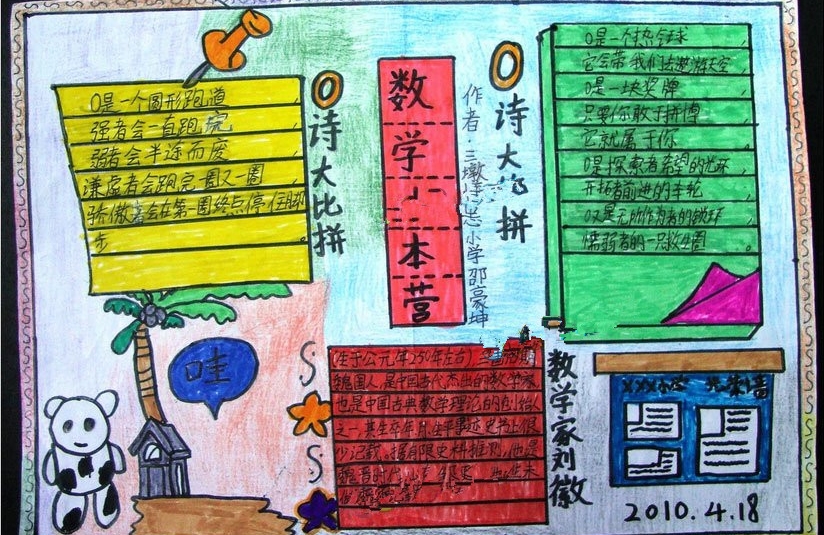 0是一个圆形跑道,
强者会一直跑完,
弱者会半途而废
谦虚者会跑完一圈又一圈,
骄傲者会在第一圈终点停住脚
步。
0诗大比拼
数学大本营
作者:三墩
小学邵豪坤
0诗大比拼
0是一个热气球,
它会带我们去遨游太空,
0是一块奖牌,
只要你敢于拼搏,
它就属于你,
0是探索者希望的光环,
开拓者前进的车轮,
0又是无所作为者的锁环,
懦弱者的一只救生圈。
哇
(生于公元年250年左右)三国
魏国人,是中国古代杰出的数学家
也是中国古典数学理论的创始人
之一.其生卒年月、生平事迹史书上很
少记载。据有限史料推测,他是
魏晋时代山东
数学家刘徽
XXX小学 光荣墙
2010.4.18